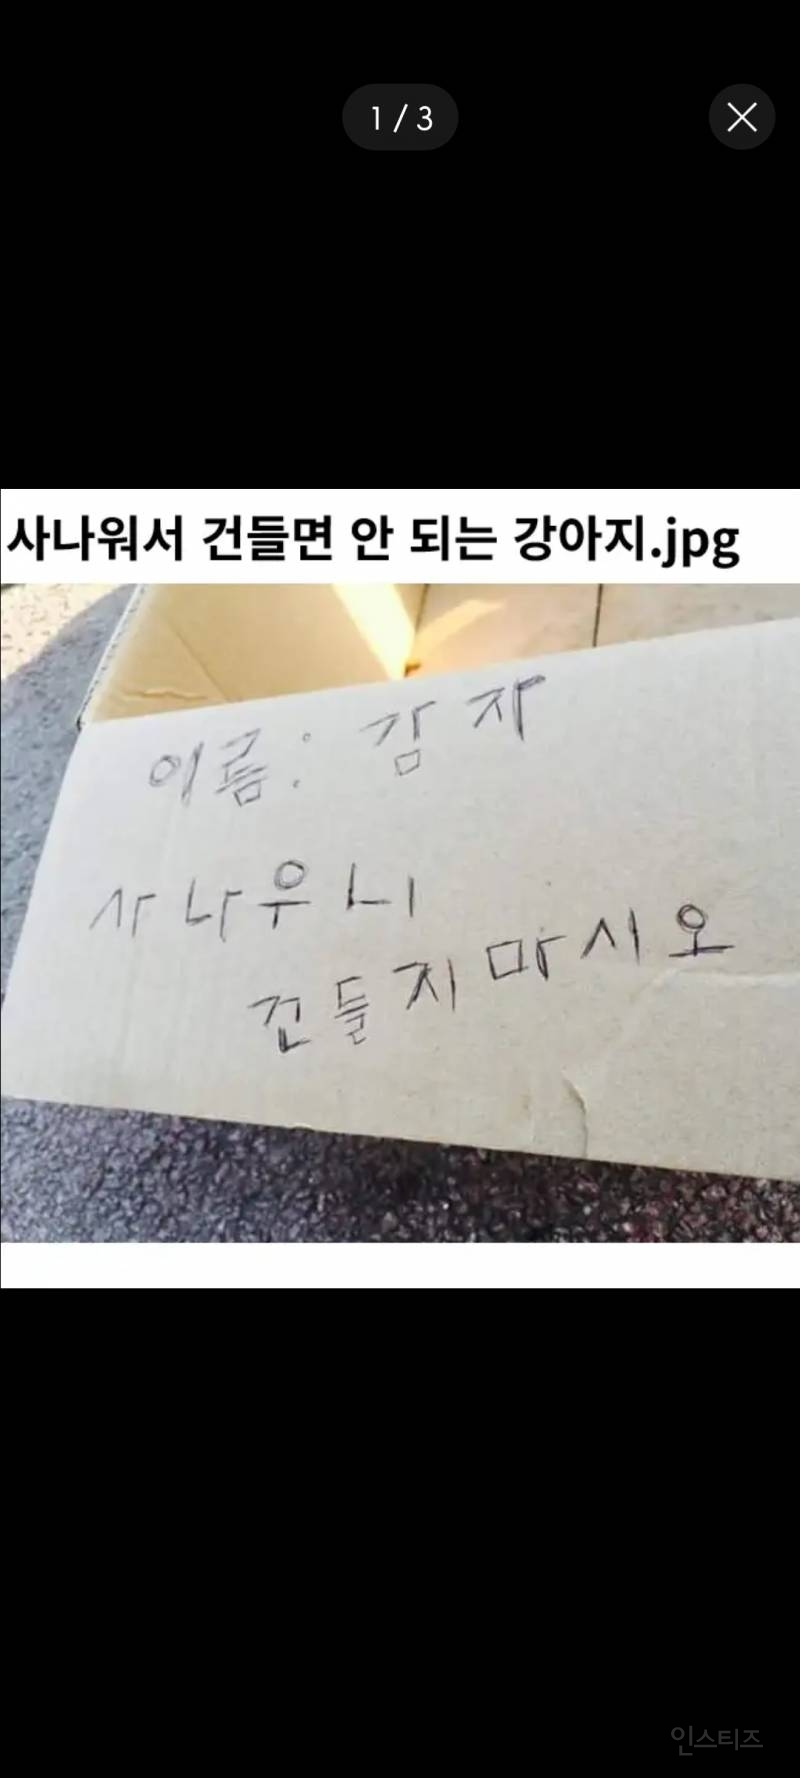 1 / 3
사나워서 건들면 안 되는 강아지.jpg
이름: 감자
사나우니
건들지 마시오
인스티즈